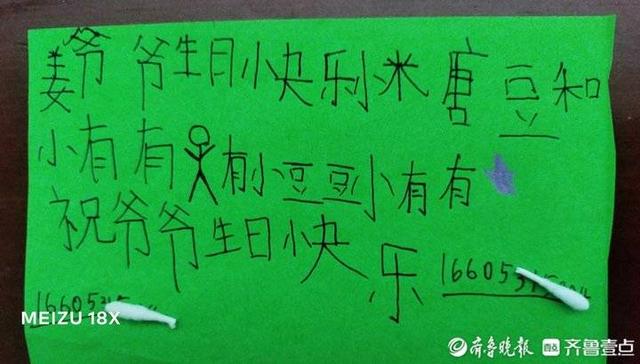 姜爷爷生日快乐小米唐豆和
小有有有小豆豆小有有
祝爷爷生日快乐
16605
16605
MEIZU 18X
齐鲁晚报 齐鲁壹点